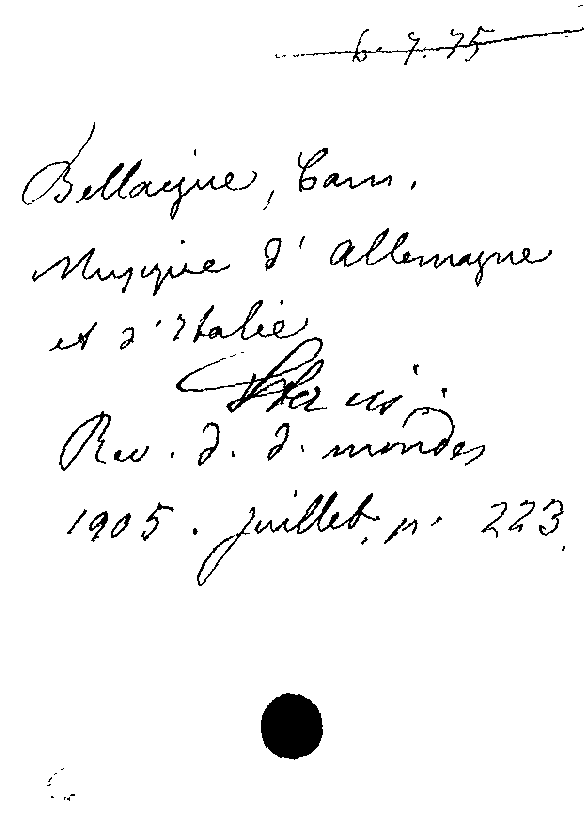 6.7.75
Bellaigue, Cam.
Musique d'Allemagne
et d'Italie
Paris.
Rev. d. d. mondes
1905. juillet, p. 223.